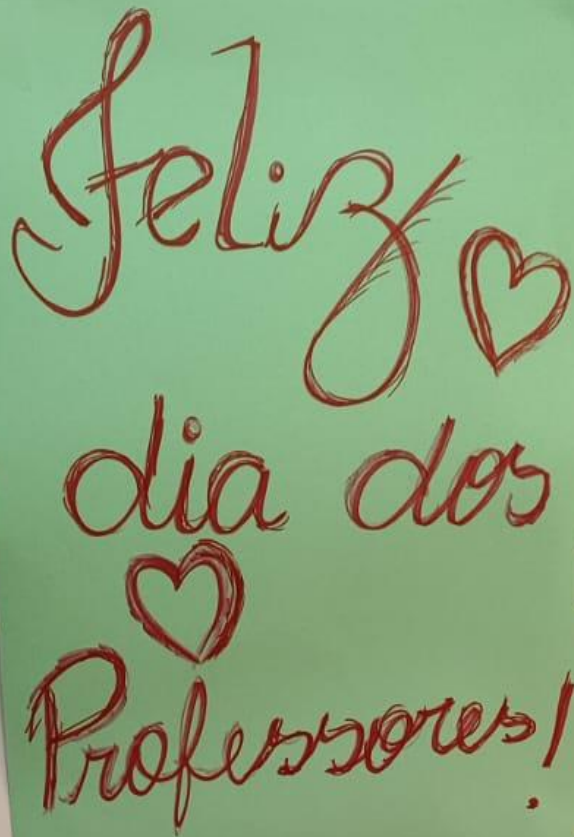 Feliz
dia dos
Professores!